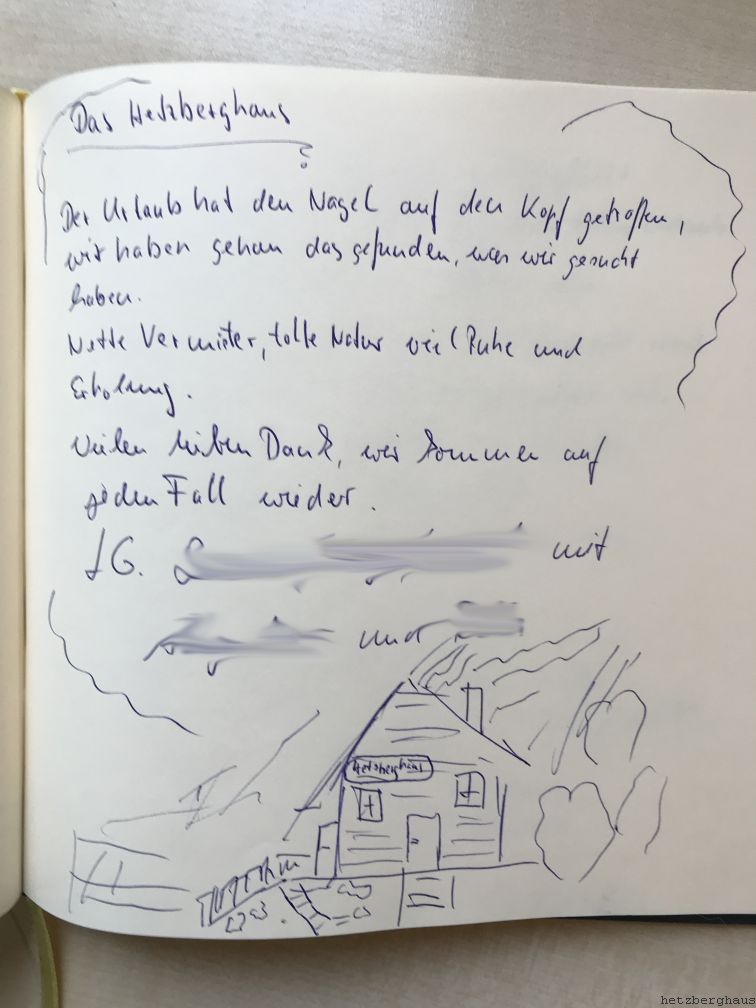 Das Hetzberghaus
Der Urlaub hat den Nagel auf den Kopf getroffen,
wir haben genau das gefunden, was wir gesucht
haben.
Nette Vermieter, tolle Natur viel Ruhe und
Erholung.
Vielen lieben Dank, wir kommen auf
jeden Fall wieder.
LG. mit
und
Hetzberghaus
hetzberghaus